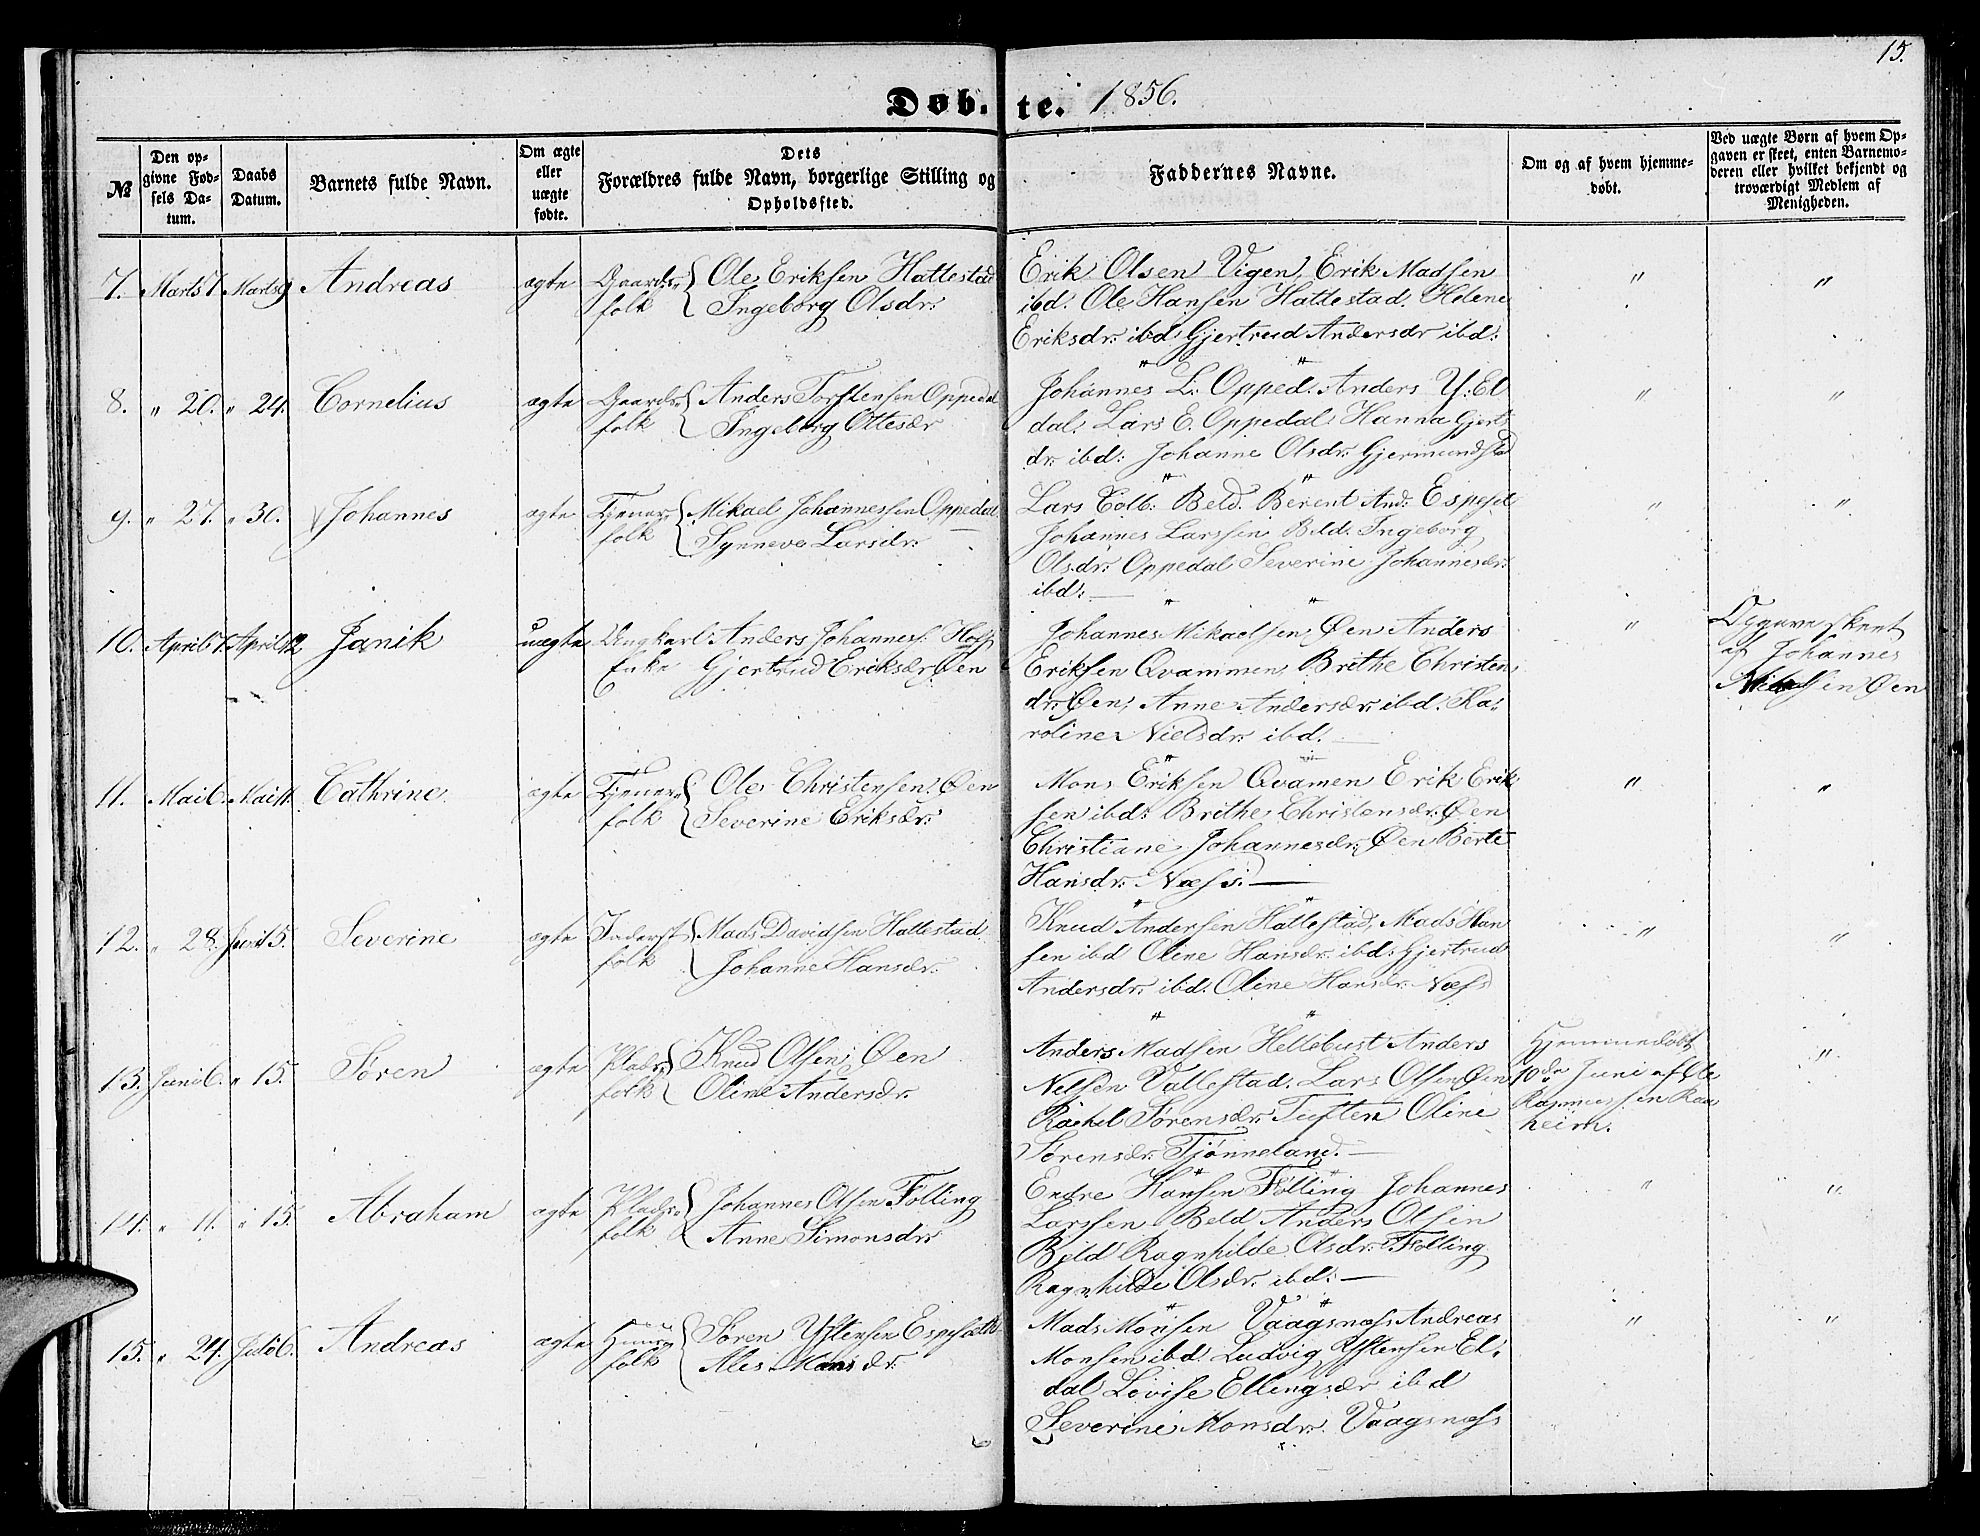 15.
Døb.te. 1856.
№
Den opgivne Fødsels Datum.
Daabs Datum.
Barnets fulde Navn.
Om ægte eller uægte fødte.
Dets Forældres fulde Navn, borgerlige Stilling og Opholdssted.
Faddernes Navne.
Om og af hvem hjemmedøbt.
Ved uægte Børn af hvem Opgaven er skeet, enten Barnemoderen eller hvilket bekjendt og troværdigt Medlem af Menigheden.
7. Marts 7. Marts 9 Andreas ægte Gaards- folk Ole Eriksen Hattestad
Ingeborg Olsdr:
Erik Olsen Vigen, Erik Madsen
ibd. Ole Hansen Hattestad. Helene
Eriksdr. ibd. Gjertrud Andersdr ibd:
" "
8. " 20. " 24. Cornelius ægte Gaards- folk Anders Torstensen Oppedal
Ingeborg Ottesdr
Johannes L. Opped. Anders Y. El
dal. Lars E. Oppedal Hanna Gjert
dr. ibd: Johanne Olsdr. Gjermundstad
" "
9. " 27. " 30. Johannes ægte Tjener- folk Mikael Johannessen Oppedal
Synneve Larsdr.
Lars Colb: Beld. Berent And: Espeset
Johannes Larssen Beld. Ingeborg
Olsdr. Oppedal Severine Johannesdr.
ibd: —
" "
10. April 7. April 12 Janik uægte Ungkarl Anders Johannes. Hoff
Enke Gjertrud Eriksdr Øen
Johannes Mikaelsen, Øen Anders
Eriksen Qvammen, Brithe Christen
dr. Øen, Anne Andersdr. ibd. Ka-
roline Nielsdr. ibd. —
" Opgave skeet
af Johannes
Øen
11. Mai 6. Mai 11. Cathrine ægte Tjener- folk Ole Christensen. Øen
Severine Eriksdr:
Mons Eriksen Qvamen Erik Erik
sen ibd: Brithe Christensdr. Øen
Christiane Johannesdr. Øen Berte
Hansdr. Næss. —
" "
12. " 28. Juni 15. Severine ægte Inderst folk Mads Davidsen Hattestad
Johanne Hansdr.
Knud Andersen Hattestad, Mads Han
sen ibd Oline Hansdr. ibd: Gjertrud
Andersdr. ibd. Oline Hansdr. Næss
" "
13. Juni 6. " 15. Søren ægte Plads- folk Knud Olsen, Øen
Oline Andersdr.
Anders Madsen Hellebust Anders
Nelsen Vallestad. Lars Olsen Øen
Rachel Sørensdr. Tuften Oline
Sørensdr. Tjønneland. —
Hjemmedøbt
10de Juni af Ole
Rasmussen Raa
heim.
"
14. " 11. " 15. Abraham ægte Plads- folk Johannes Olsen Følling
Anne Simonsdr.
Endre Hansen Følling Johannes
Larssen Beld Anders Olsen
Beld Ragnhilde Olsdr. Følling
Ragnhilde Olsdr. ibd: —
" "
15. " 24. Juli 6. Andreas ægte Huus- folk Søren Ystensen Espeseth
Alis Monsdr.
Mads Monsen Vaagsnæs Andreas
Monsen ibd. Ludvig Ystensen El-
dal Lovise Ellingsdr ibd
Severine Monsdr. Vaagsnæss
" "